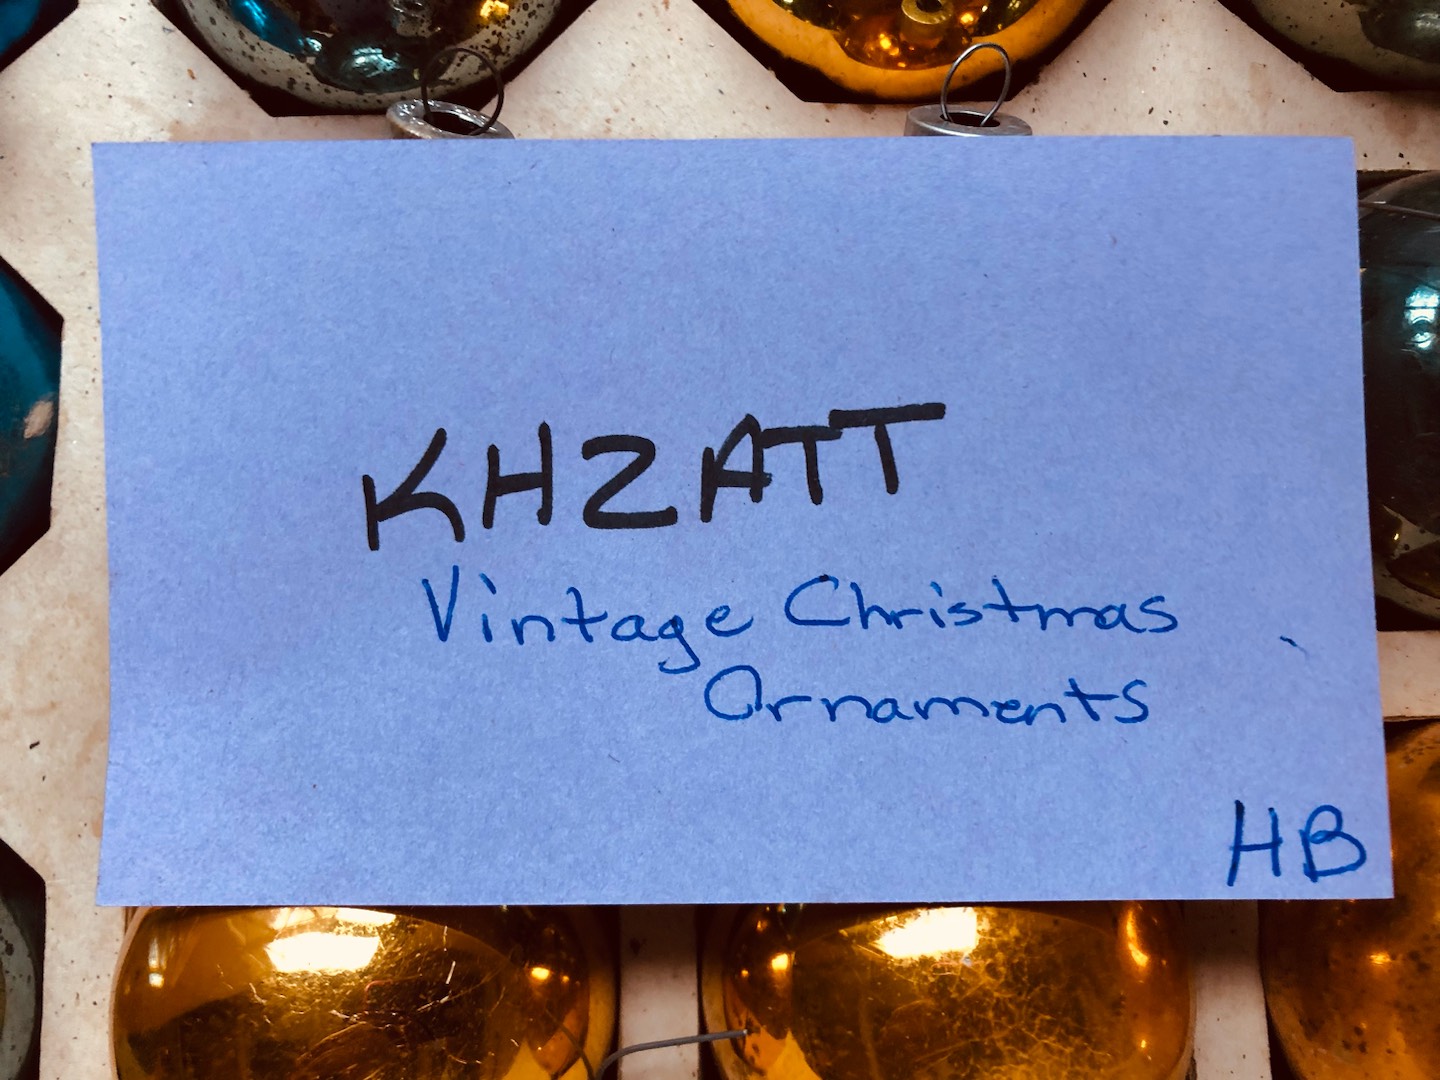 KHZATT
Vintage Christmas
Ornaments
HB